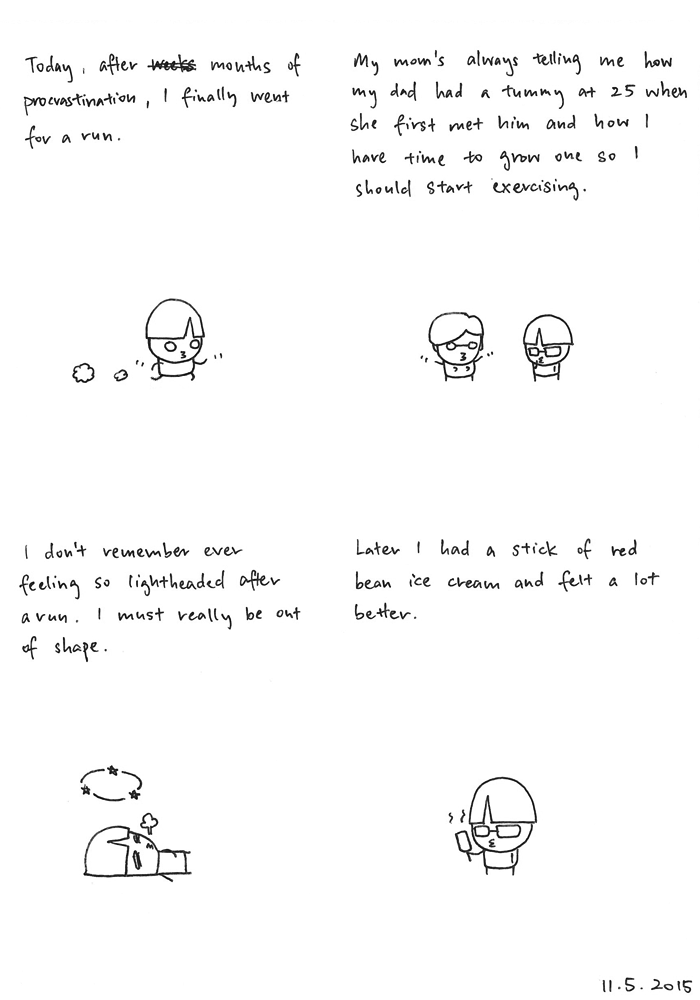 Today, after weeks months of
procrastination, I finally went
for a run.
My mom's always telling me how
my dad had a tummy at 25 when
she first met him and how I
have time to grow one so I
should start exercising.
I don't remember ever
feeling so lightheaded after
a run. I must really be out
of shape.
Later I had a stick of red
bean ice cream and felt a lot
better.
11.5.2015